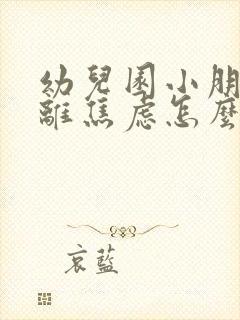 幼兒園小朋
離焦慮怎麼
哀藍